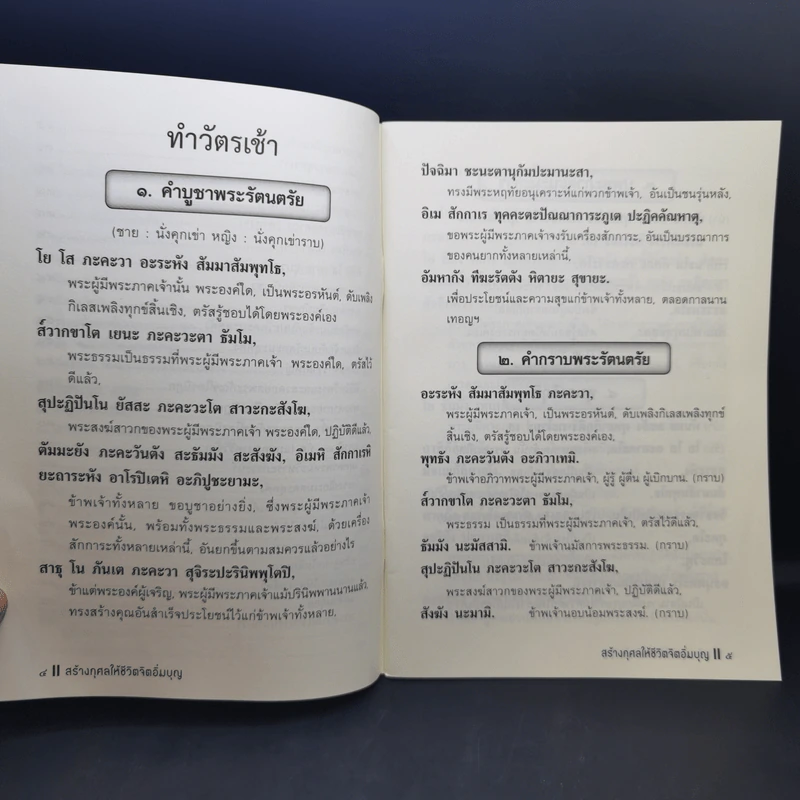 ทำวัตรเช้า
๑. คำบูชาพระรัตนตรัย
(ชาย : นั่งคุกเข่า หญิง : นั่งคุกเข่าราบ)
โย โส ภะคะวา อะระหัง สัมมาสัมพุทโธ,
พระผู้มีพระภาคเจ้านั้น พระองค์ใด, เป็นพระอรหันต์, ดับเพลิง
กิเลสเพลิงทุกข์สิ้นเชิง, ตรัสรู้ชอบได้โดยพระองค์เอง
ส๎วากขาโต เยนะ ภะคะวะตา ธัมโม,
พระธรรมเป็นธรรมที่พระผู้มีพระภาคเจ้า พระองค์ใด, ตรัสไว้
ดีแล้ว,
สุปะฏิปันโน ยัสสะ ภะคะวะโต สาวะกะสังโฆ,
พระสงฆ์สาวกของพระผู้มีพระภาคเจ้า พระองค์ใด, ปฏิบัติดีแล้ว,
ตัมมะยัง ภะคะวันตัง สะธัมมัง สะสังฆัง, อิเมหิ สักกาเรหิ
ยะถาระหัง อาโรปิเตหิ อะภิปูชะยามะ,
ข้าพเจ้าทั้งหลาย ขอบูชาอย่างยิ่ง, ซึ่งพระผู้มีพระภาคเจ้า
พระองค์นั้น, พร้อมทั้งพระธรรมและพระสงฆ์, ด้วยเครื่อง
สักการะทั้งหลายเหล่านี้, อันยกขึ้นตามสมควรแล้วอย่างไร
สาธุ โน ภันเต ภะคะวา สุจิระปะรินิพพุโตปิ,
ข้าแต่พระองค์ผู้เจริญ, พระผู้มีพระภาคเจ้าแม้ปรินิพพานนานแล้ว,
ทรงสร้างคุณอันสำเร็จประโยชน์ไว้แก่ข้าพเจ้าทั้งหลาย.
๔ || สร้างกุศลให้ชีวิตจิตอิ่มบุญ
ปัจฉิมา ชะนะตานุกัมปะมานะสา,
ทรงมีพระหฤทัยอนุเคราะห์แก่พวกข้าพเจ้า, อันเป็นชนรุ่นหลัง,
อิเม สักกาเร ทุคคะตะปัณณาการะภูเต ปะฏิคคัณหาตุ,
ขอพระผู้มีพระภาคเจ้าจงรับเครื่องสักการะ, อันเป็นบรรณาการ
ของคนยากทั้งหลายเหล่านี้,
อัมหากัง ทีฆะรัตตัง หิตายะ สุขายะ.
เพื่อประโยชน์และความสุขแก่ข้าพเจ้าทั้งหลาย, ตลอดกาลนาน
เทอญฯ
๒. คำกราบพระรัตนตรัย
อะระหัง สัมมาสัมพุทโธ ภะคะวา,
พระผู้มีพระภาคเจ้า, เป็นพระอรหันต์, ดับเพลิงกิเลสเพลิงทุกข์
สิ้นเชิง, ตรัสรู้ชอบได้โดยพระองค์เอง,
พุทธัง ภะคะวันตัง อะภิวาเทมิ.
ข้าพเจ้าอภิวาทพระผู้มีพระภาคเจ้า, ผู้รู้ ผู้ตื่น ผู้เบิกบาน. (กราบ)
ส๎วากขาโต ภะคะวะตา ธัมโม,
พระธรรม เป็นธรรมที่พระผู้มีพระภาคเจ้า, ตรัสไว้ดีแล้ว,
ธัมมัง นะมัสสามิ. ข้าพเจ้านมัสการพระธรรม. (กราบ)
สุปะฏิปันโน ภะคะวะโต สาวะกะสังโฆ,
พระสงฆ์สาวกของพระผู้มีพระภาคเจ้า, ปฏิบัติดีแล้ว,
สังฆัง นะมามิ. ข้าพเจ้านอบน้อมพระสงฆ์. (กราบ)
สร้างกุศลให้ชีวิตจิตอิ่มบุญ || ๕